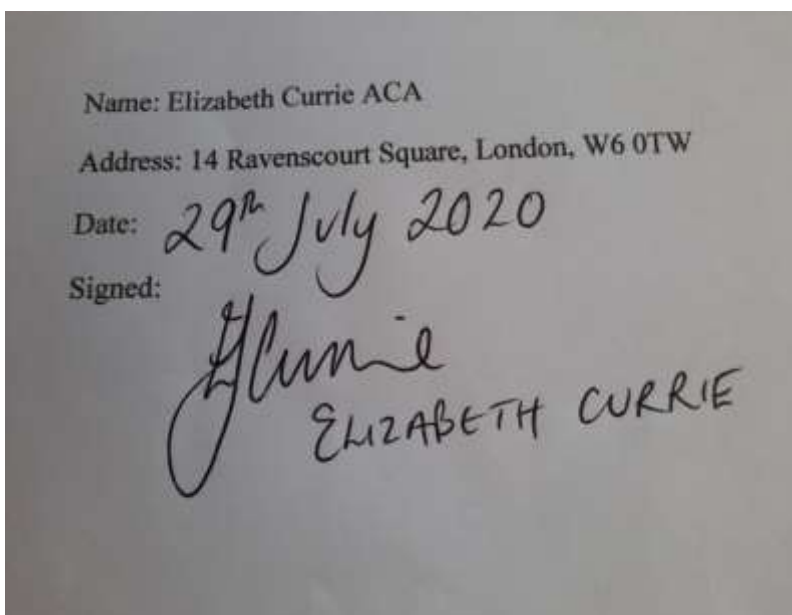 Name: Elizabeth Currie ACA
Address: 14 Ravenscourt Square, London, W6 0TW
Date: 29th July 2020
Signed:
EJCurrie
ELIZABETH CURRIE